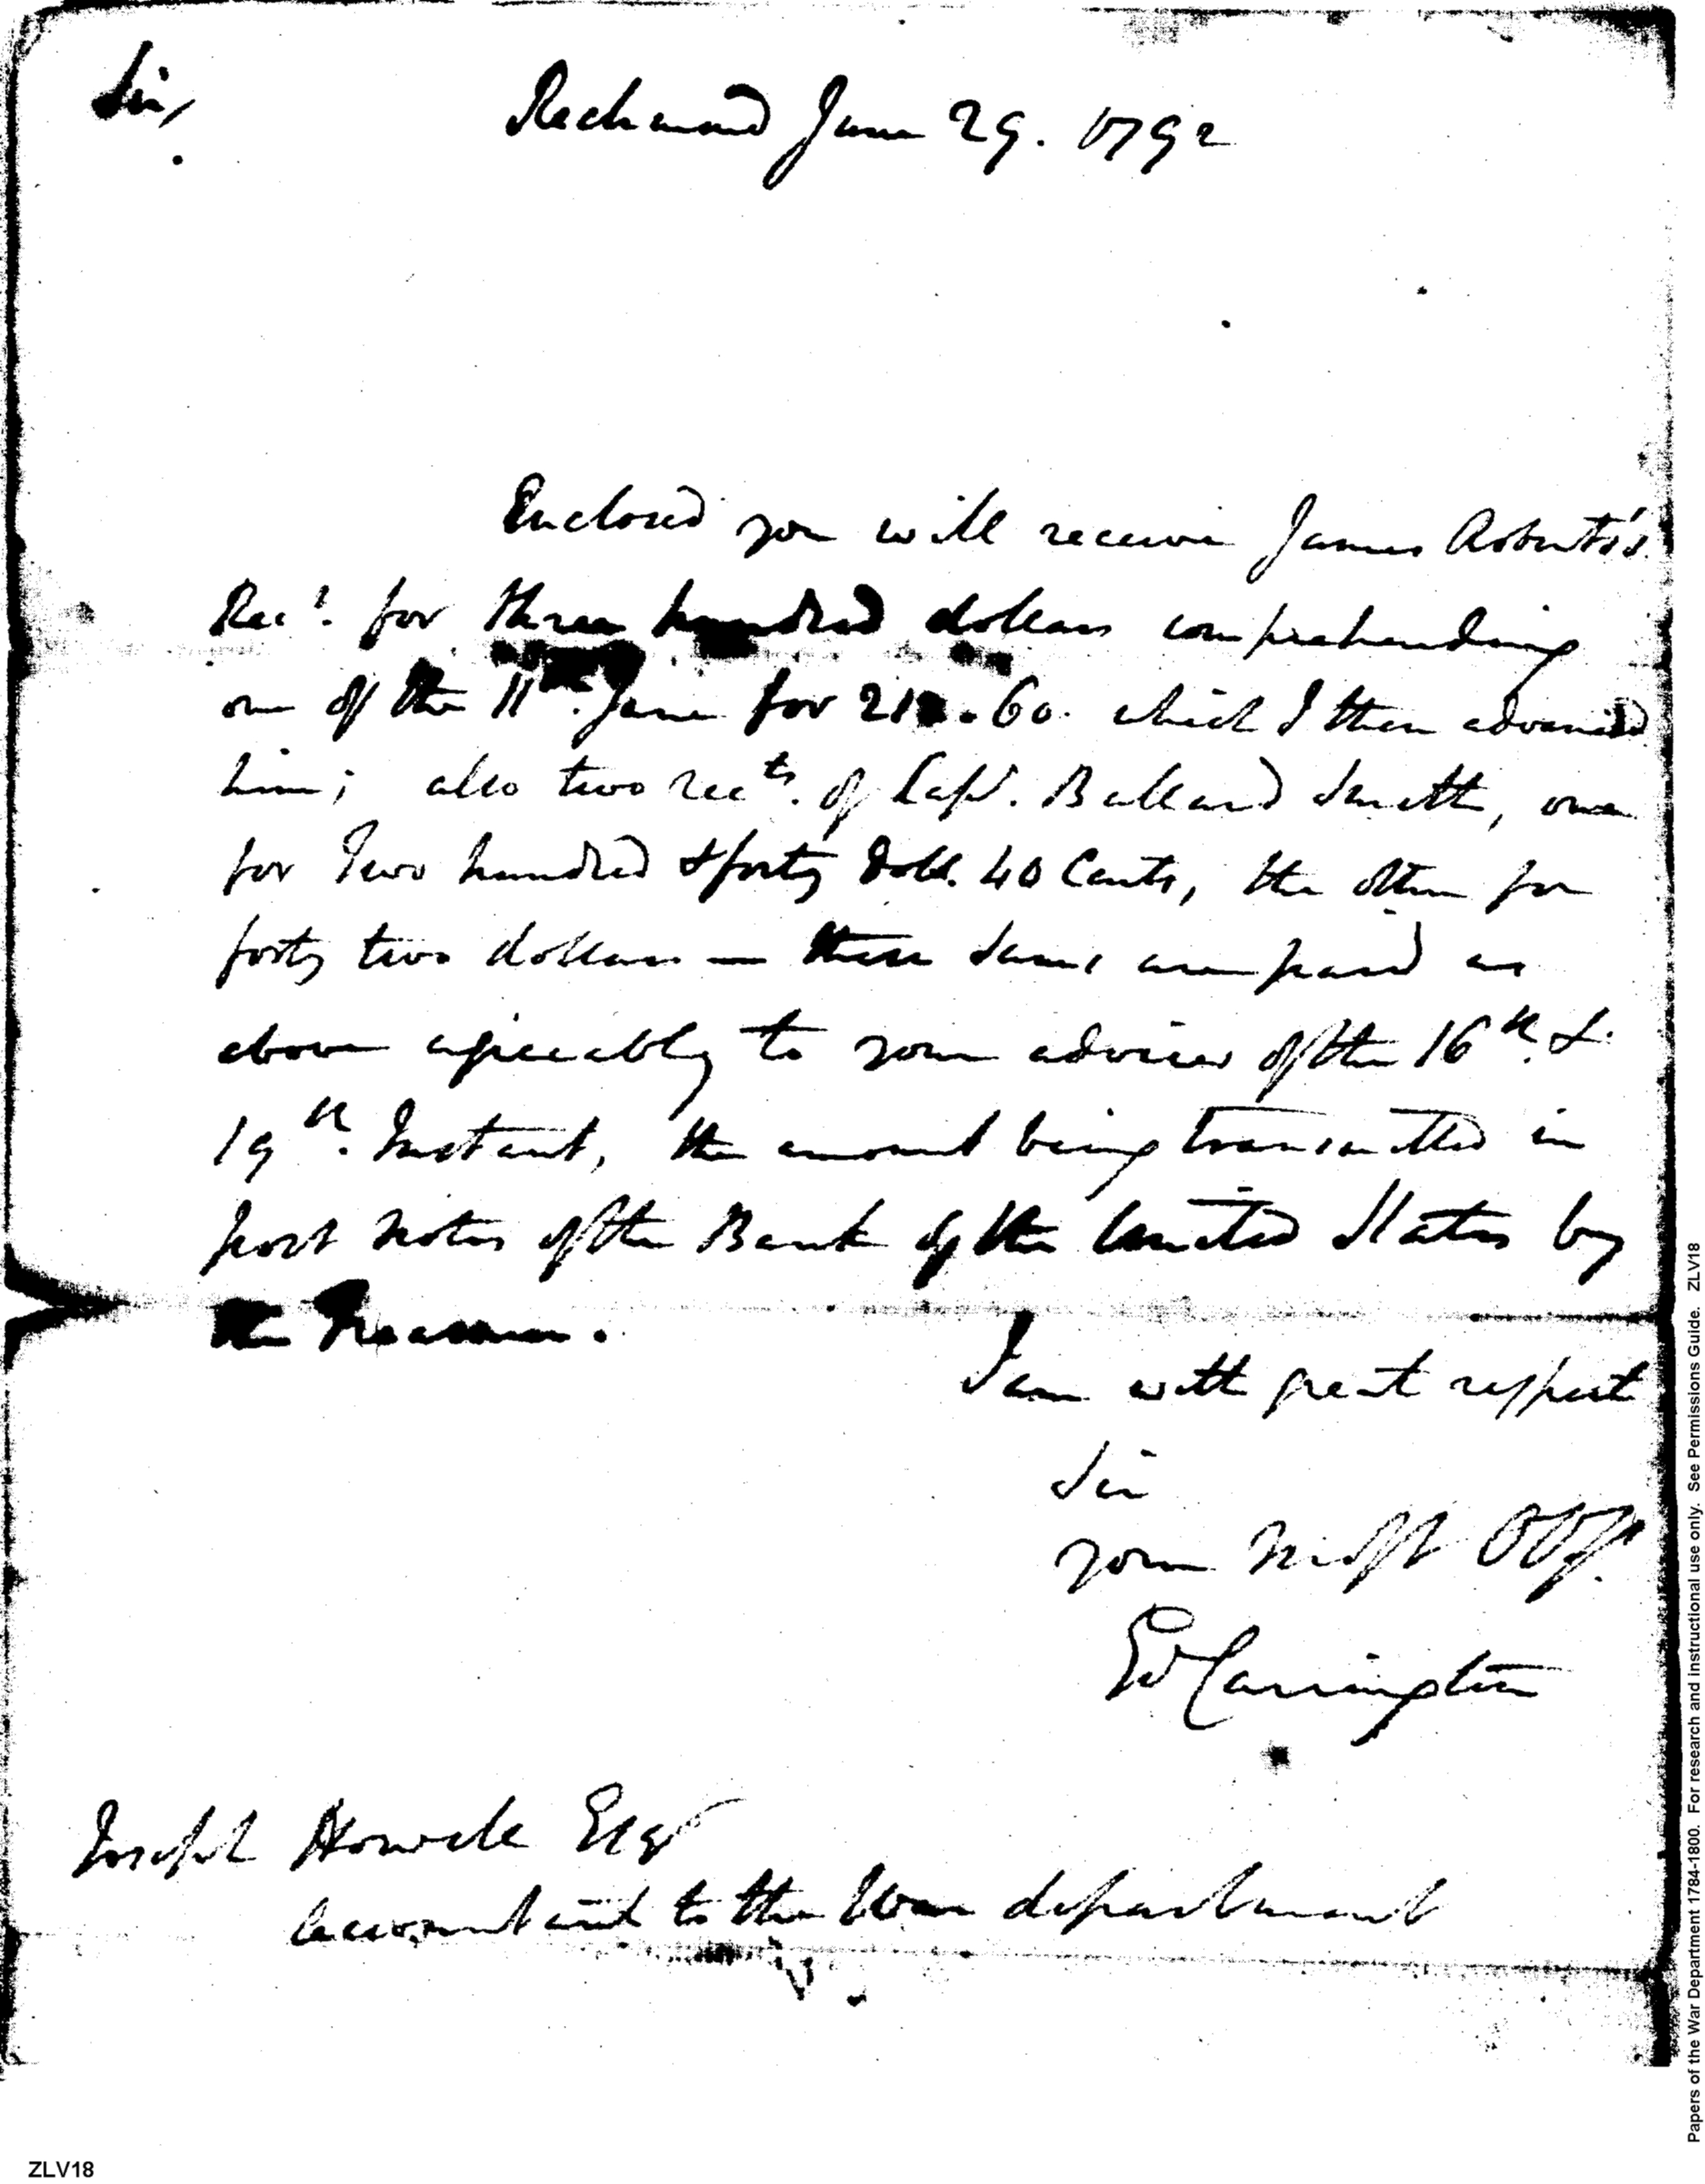 Sir,
Richmond June 29. 1792
Enclosed you will receive James Roberts's
Rect. for three hundred dollars comprehending
one of the 11th. June for 21 .60. which I then advanced
him; also two rects. of Capt. Ballard Smith, one
for Two hundred & forty Doll. 40 Cents, the other for
forty two dollars — these sums are paid as
above agreeably to your advices of the 16th. &
19th. Instant, the amount being transmitted in
post notes of the Bank of the United States by
the Treasurer.
I am with great respect
Sir
your most Obt.
Ed Carrington
Joseph Howell Esqr
Accountant to the War department
ZLV18
Papers of the War Department 1784-1800. For research and instructional use only. See Permissions Guide. ZLV18